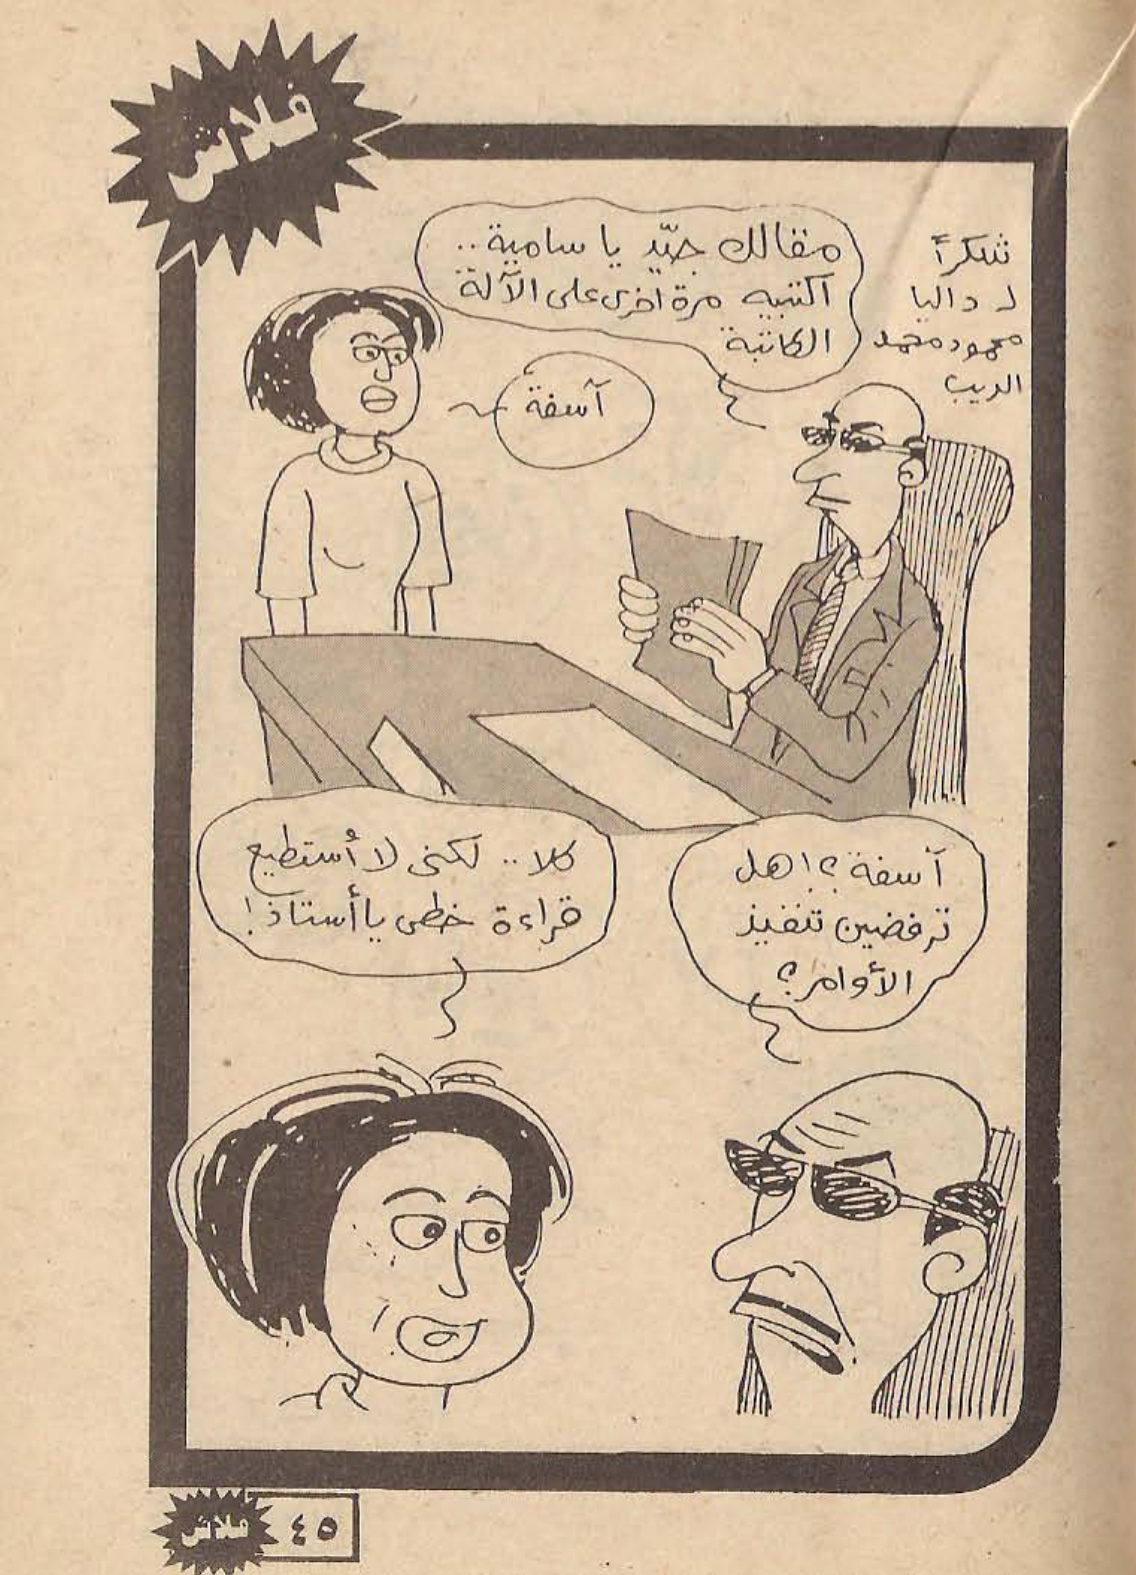 فلاش
شكراً
لـ داليا
محمود محمد
الديب
مقالك جيّد يا سامية..
اكتبيه مرة اخرى على الآلة
الكاتبة
آسفة
آسفة؟! هل
ترفضين تنفيذ
الأوامر؟
كلا.. لكنى لا أستطيع
قراءة خطى يا أستاذ!
فلاش
٤٥